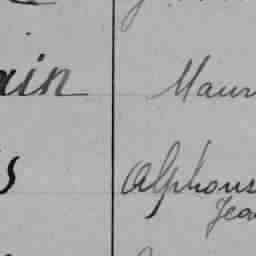 ain Maur
s Alphons
Jea